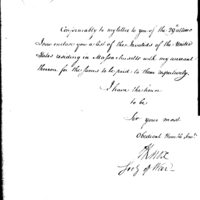 Conformably to my letter to you of the 29th Ultimo
I now enclose you a list of the Invalids of the United
States residing in Massachusetts with my warrant
thereon for the sums to be paid to them respectively.
I have the honor
to be
Sir your most
Obedient Humble Servt.
HKnox
Secy of War